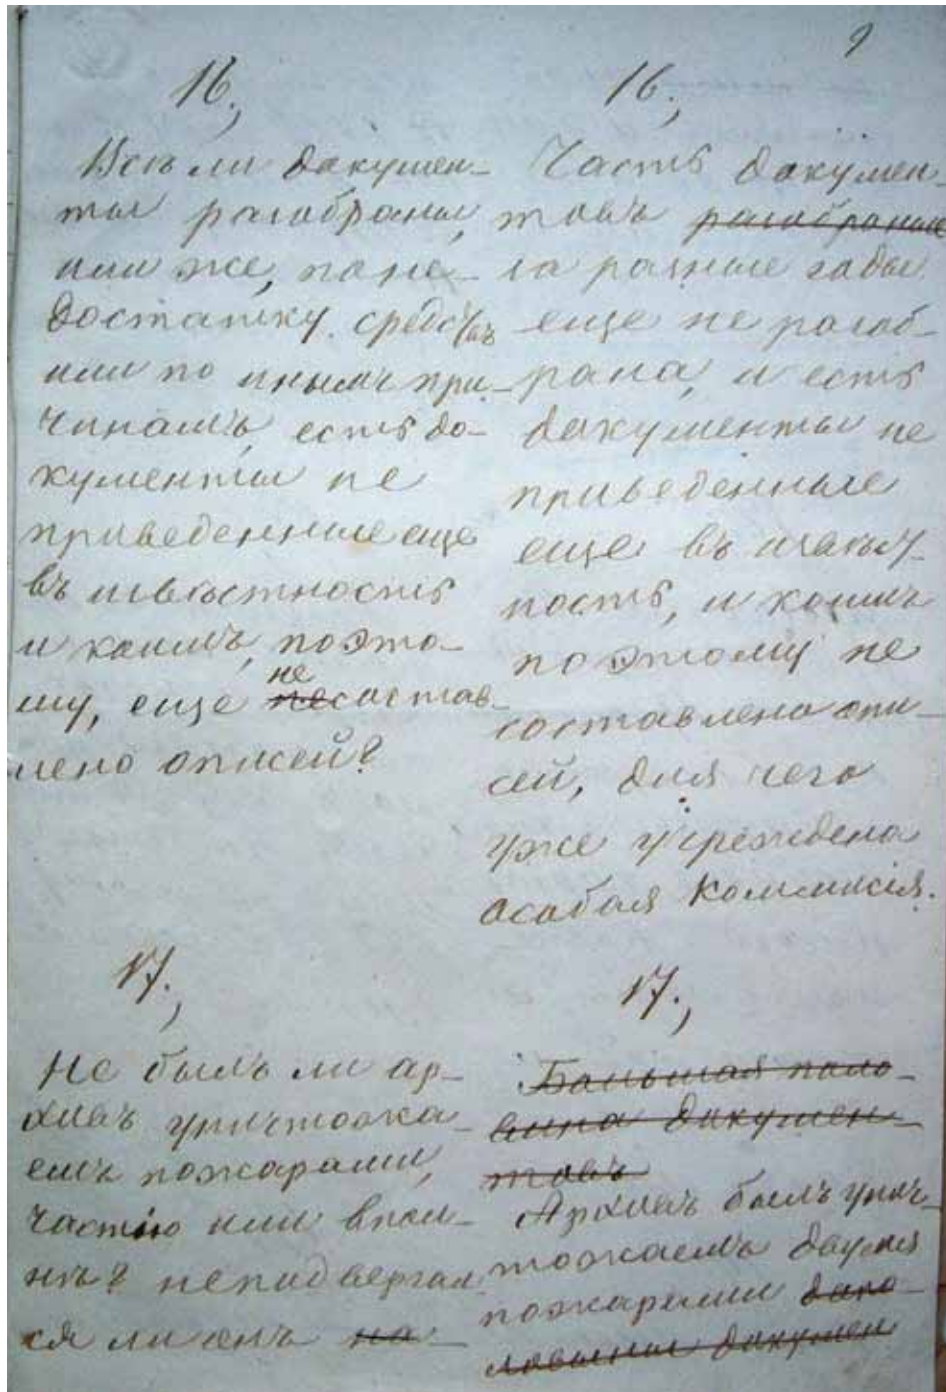 9
16.,
Всѣ ли дакумен-
ты разобраны,
или же, по не-
достатку средствъ
или по инымъ при-
чинамъ, есть до-
кументы не
приведенные еще
въ извѣстность
и коимъ, поэто-
му, еще не
несостав-
лено описей?
17.,
Не былъ ли ар-
хивъ уничтожа-
емъ пожарами,
частію или впол-
нѣ? неподвергал
ся ли онъ на-
16.,
Часть дакумен-
товъ разобраные
за разные годы
еще не разоб-
рана, и есть
дакументы не
приведенные
еще въ извѣст-
ность, и коимъ
поэтому не
составлено опи-
сей, для чего
уже учреждена
особая Коммисія.
17.,
Большая поло-
вина дакумен-
товъ
Архивъ былъ унич-
тожаемъ двумя
пожарами
дакумен